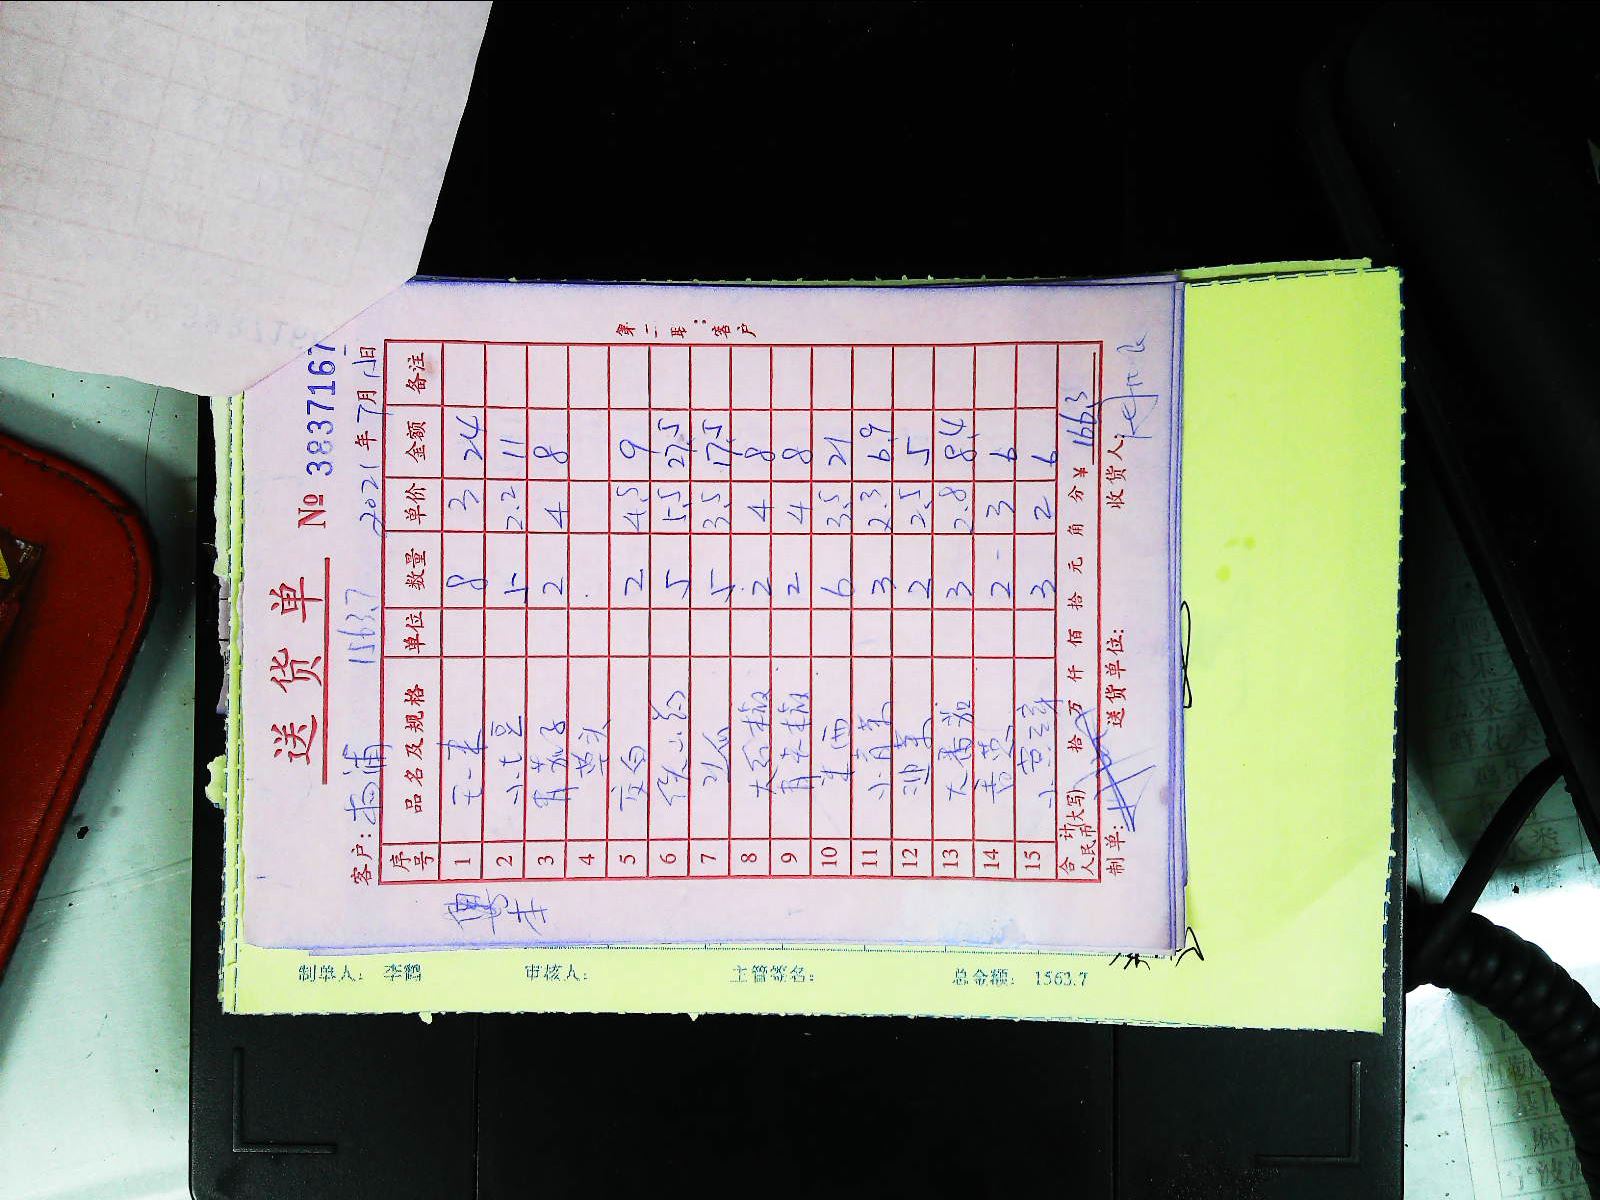 送货单
№ 3837167
客户: 杨浦 1563.7 2021年7月1日
序号 品名及规格 单位 数量 单价 金额 备注
1 毛毛菜 8 3 24
2 小毛豆 5 2.2 11
3 青茄子 2 4 8
4
5 茭白 2 4.5 9
6 铁山药 5 5.5 27.5
7 5 3.5 17.5
8 大红椒 2 4 8
9 青大椒 2 4 8
10 生西 6 3.5 21
11 小青菜 3 2.3 6.9
12 2 2.5 5
13 大番茄 3 2.8 8.4
14 2 3 6
15 3 2 6
合计人民币(大写) 拾 万 仟 佰 拾 元 角 分 ¥ 166.3
制单: 送货单位: 收货人:
第二联:客户
制单人: 华霞 审核人: 主管签名: 总金额: 1563.7